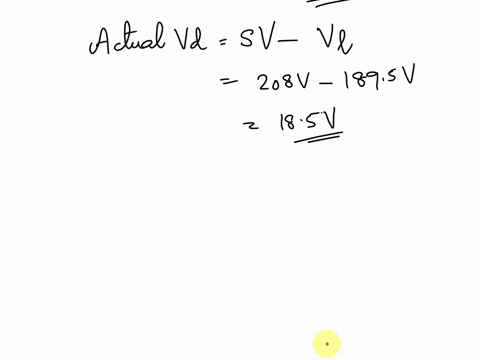 Actual Vd = SV - Vl
= 208V - 189.5V
= 18.5V